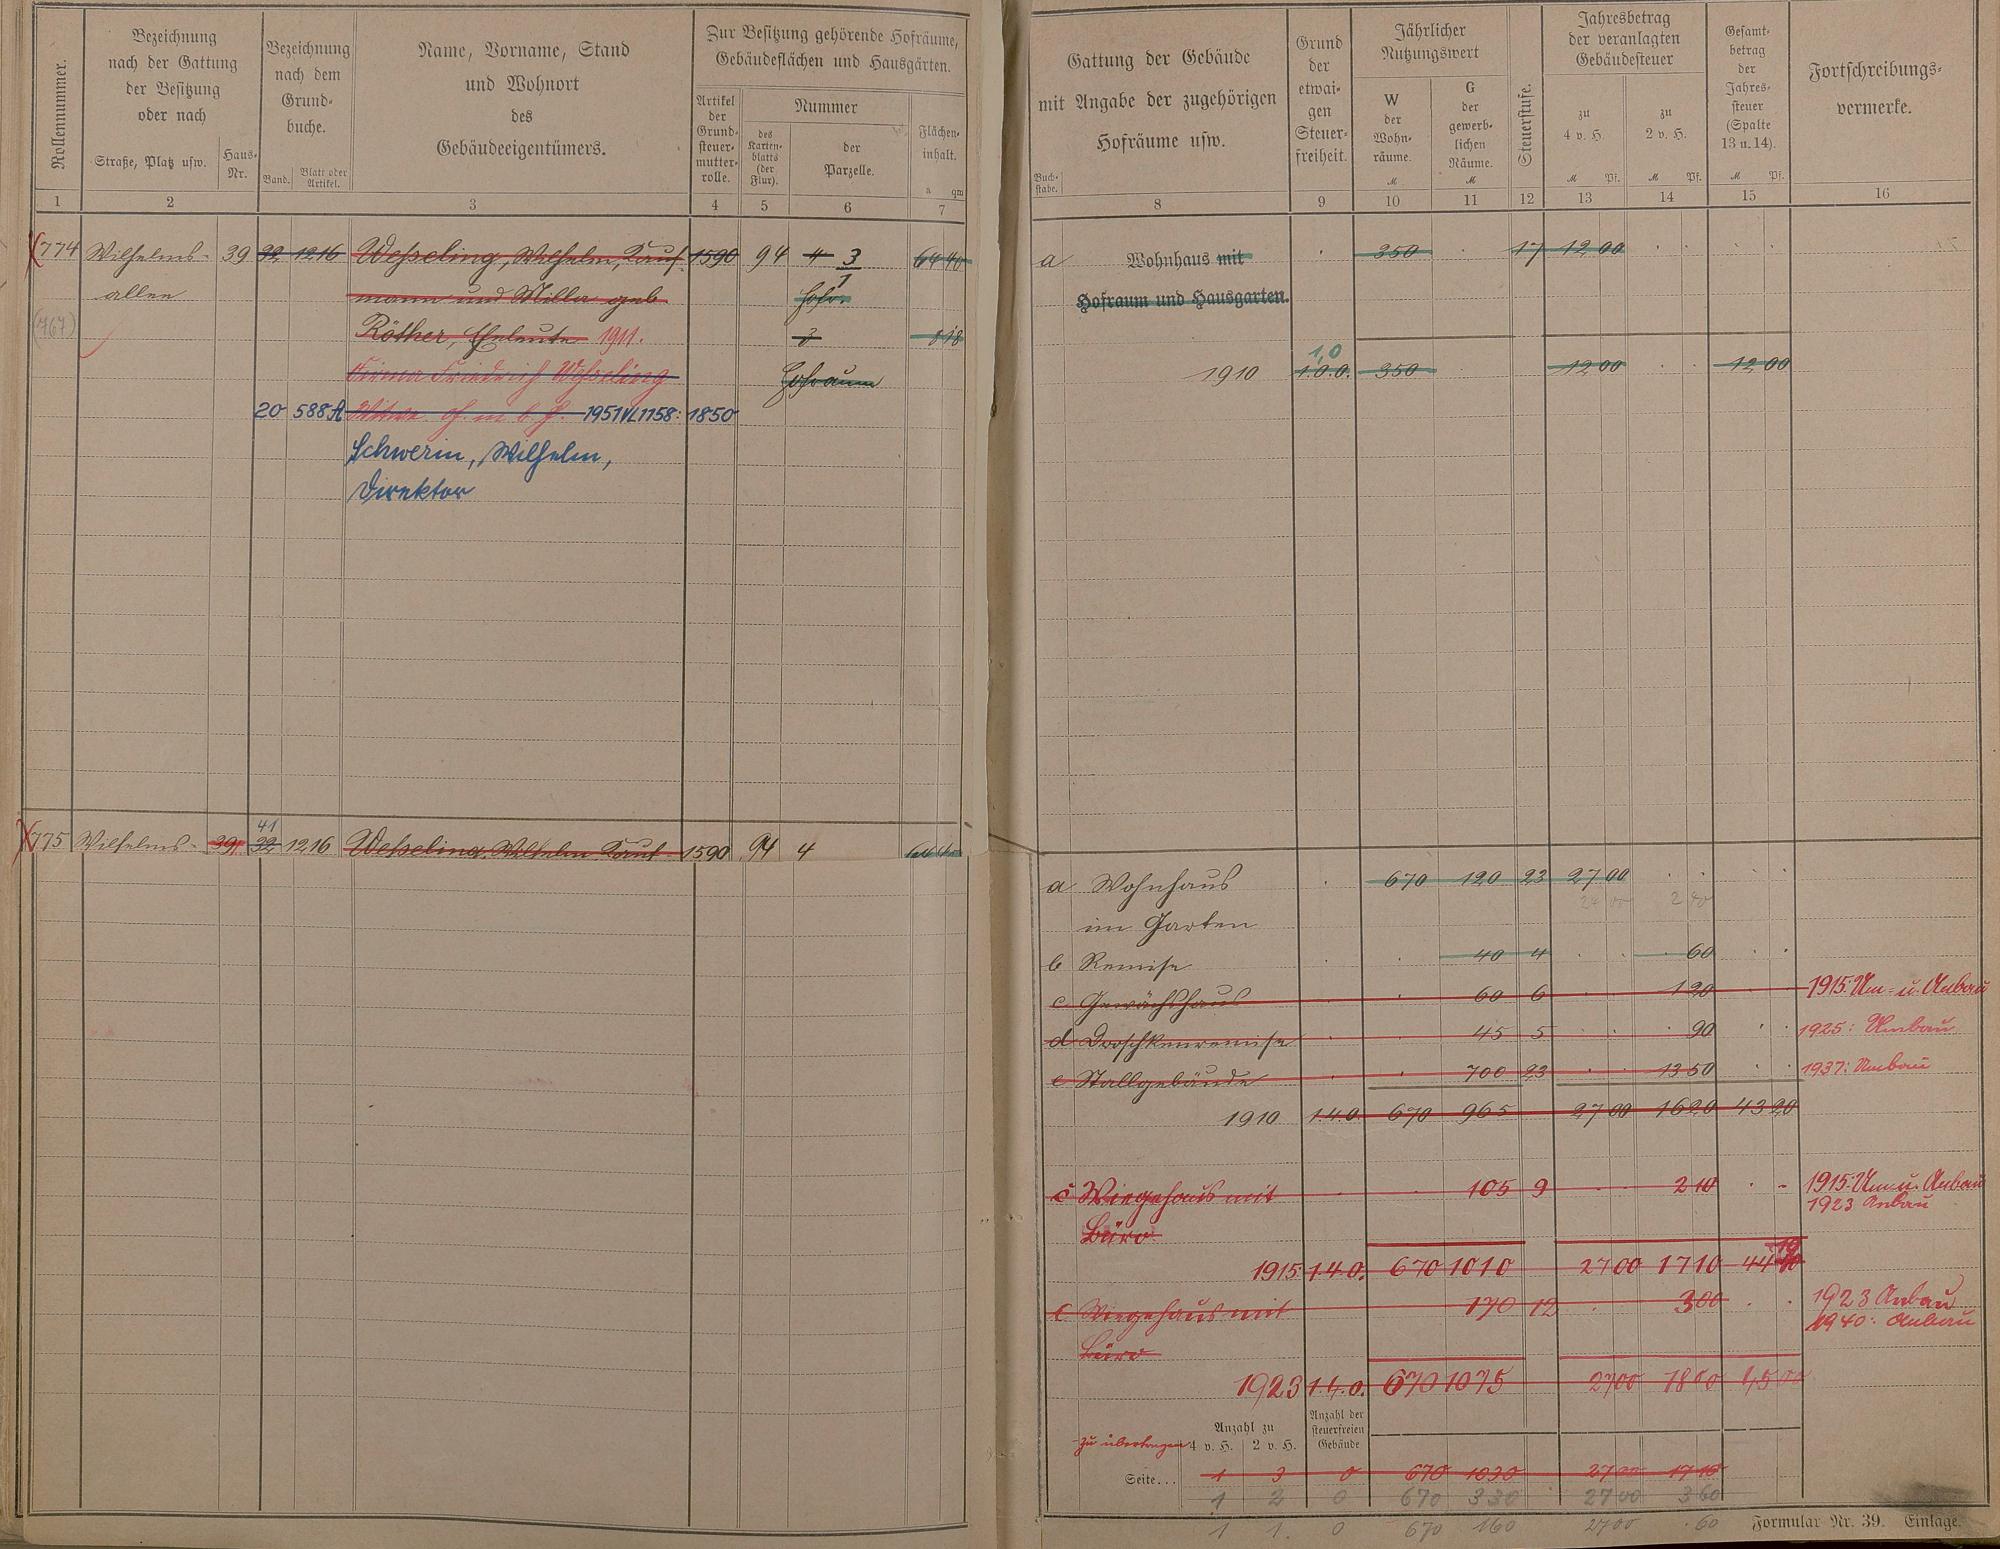 Rollennummer.
Bezeichnung
nach der Gattung
der Besitzung
oder nach
Straße, Platz usw.
Haus-
Nr.
Bezeichnung
nach dem
Grund-
buche.
Band.
Blatt oder
Artikel.
Name, Vorname, Stand
und Wohnort
des
Gebäudeeigentümers.
Zur Besitzung gehörende Hofräume,
Gebäudeflächen und Hausgärten.
Artikel
der
Grund-
steuer-
mutter-
rolle.
Nummer
des
Karten-
blatts
(der
Flur).
der
Parzelle.
Flächen-
inhalt.
a qm
1 2 3 4 5 6 7
774 Wilhelms- 39 32 1216 Wesseling, Wilhelm, Kauf- 1590 94 4 3/1 64 40
allee mann und Milla geb. Hofr.
(767) Röther, Eheleute 1911. 3 8 18
Firma Friedrich Wesseling Hofraum
20 588A Witwe G. m. b. H. 1951 VL 1158: 1850
Schwerin, Wilhelm,
Direktor
41
775 Wilhelms- 39 32 1216 Wesseling, Wilhelm Kauf- 1590 94 4 64 40
Buch-
stabe.
Gattung der Gebäude
mit Angabe der zugehörigen
Hofräume usw.
Grund
der
etwai-
gen
Steuer-
freiheit.
Jährlicher
Nutzungswert
W
der
Wohn-
räume.
M
G
der
gewerb-
lichen
Räume.
M
Steuerstufe.
Jahresbetrag
der veranlagten
Gebäudesteuer
zu
4 v. H.
M Pf.
zu
2 v. H.
M Pf.
Gesamt-
betrag
der
Jahres-
steuer
(Spalte
13 u. 14).
M Pf.
Fortschreibungs-
vermerke.
8 9 10 11 12 13 14 15 16
a Wohnhaus mit 350 17 12 00
Hofraum und Hausgarten.
1,0
1910 1.0.0. 350 12 00 12 00
a Wohnhaus 670 120 23 27 00
24 00 2 40
im Garten
b Remise 40 4 60
c Gewächshaus 60 6 1 20 1915: Um- u. Anbau
d Droschkenremise 45 5 90 1925: Umbau
e Stallgebäude 700 23 13 50 1937: Umbau
1910 1.4.0. 670 965 27 00 16 20 43 20
c Wiegehaus mit 105 9 2 10 1915: Um u. Anbau
1923 Anbau
Büro
1915 1.4.0. 670 1010 27 00 17 10 44 10
c Wiegehaus mit 170 12 3 00 1923 Anbau
1940: Anbau
Büro
1923 1.4.0. 670 1075 27 00 18 00 45 00
Anzahl zu
4 v. H. 2 v. H.
Anzahl der
steuerfreien
Gebäude
zu übertragen
Seite... 1 3 0 670 1030 27 00 17 10
1 2 0 670 330 27 00 3 60
1 1. 0 670 160 27 00 60
Formular Nr. 39. Einlage.